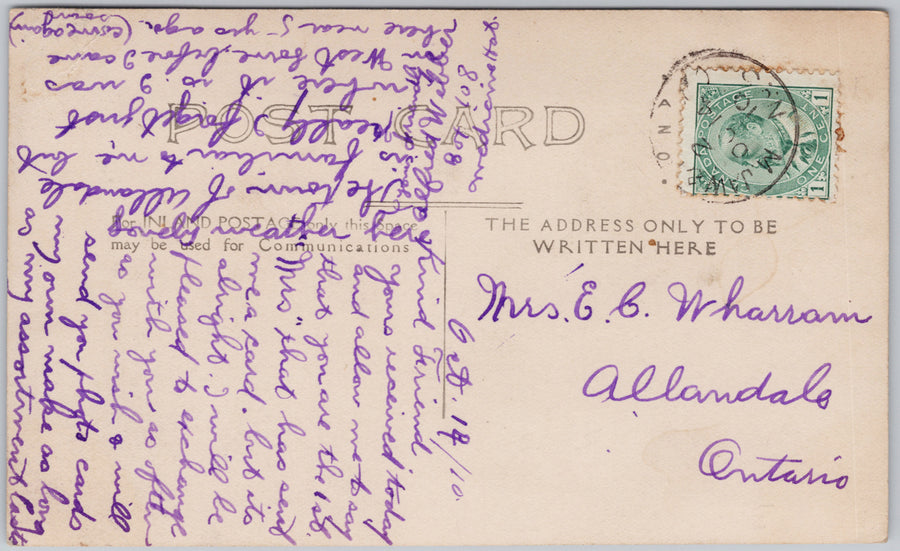 POST CARD
For INLAND POSTAGE only this Space
may be used for Communications
THE ADDRESS ONLY TO BE
WRITTEN HERE
CANADA POSTAGE
1 ONE CENT 1
MOOSE JAW
Mrs. E. C. Wharram
Allandale
Ontario
Oct. 14/10.
Kind Friend
yours received today
and allow me to say
that you are the 1st
"Mrs" that has sent
me a card. but its
alright. I will be
pleased to exchange
with you as often
as you wish & will
send you photo cards
my own make as long
as my assortment lasts
the town of Allandale
is familiar to me but
really I forget just
where it is. I was
in West some before I came
here near 5 yrs ago. (come again
soon)
Box 268